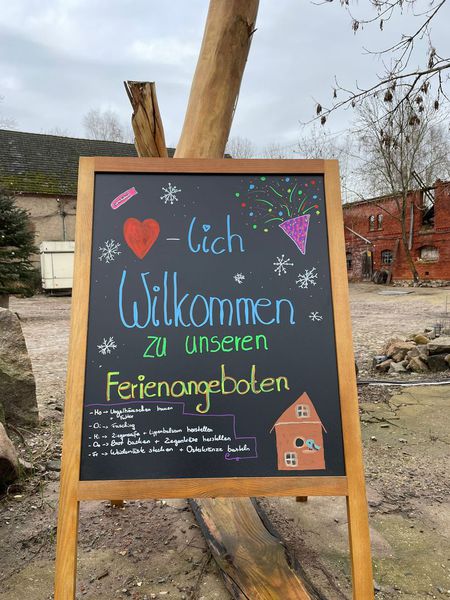 -lich
Wilkommen
zu unseren
Ferienangeboten
- Mo → Vogelhäuschen bauen
+ Futter
- Di → Fasching
- Mi → Ziegenseife + Lippenbalsam herstellen
- Do → Brot backen + Ziegenkäse herstellen
- Fr → Weidenkörbe stecken + Osterkränze basteln